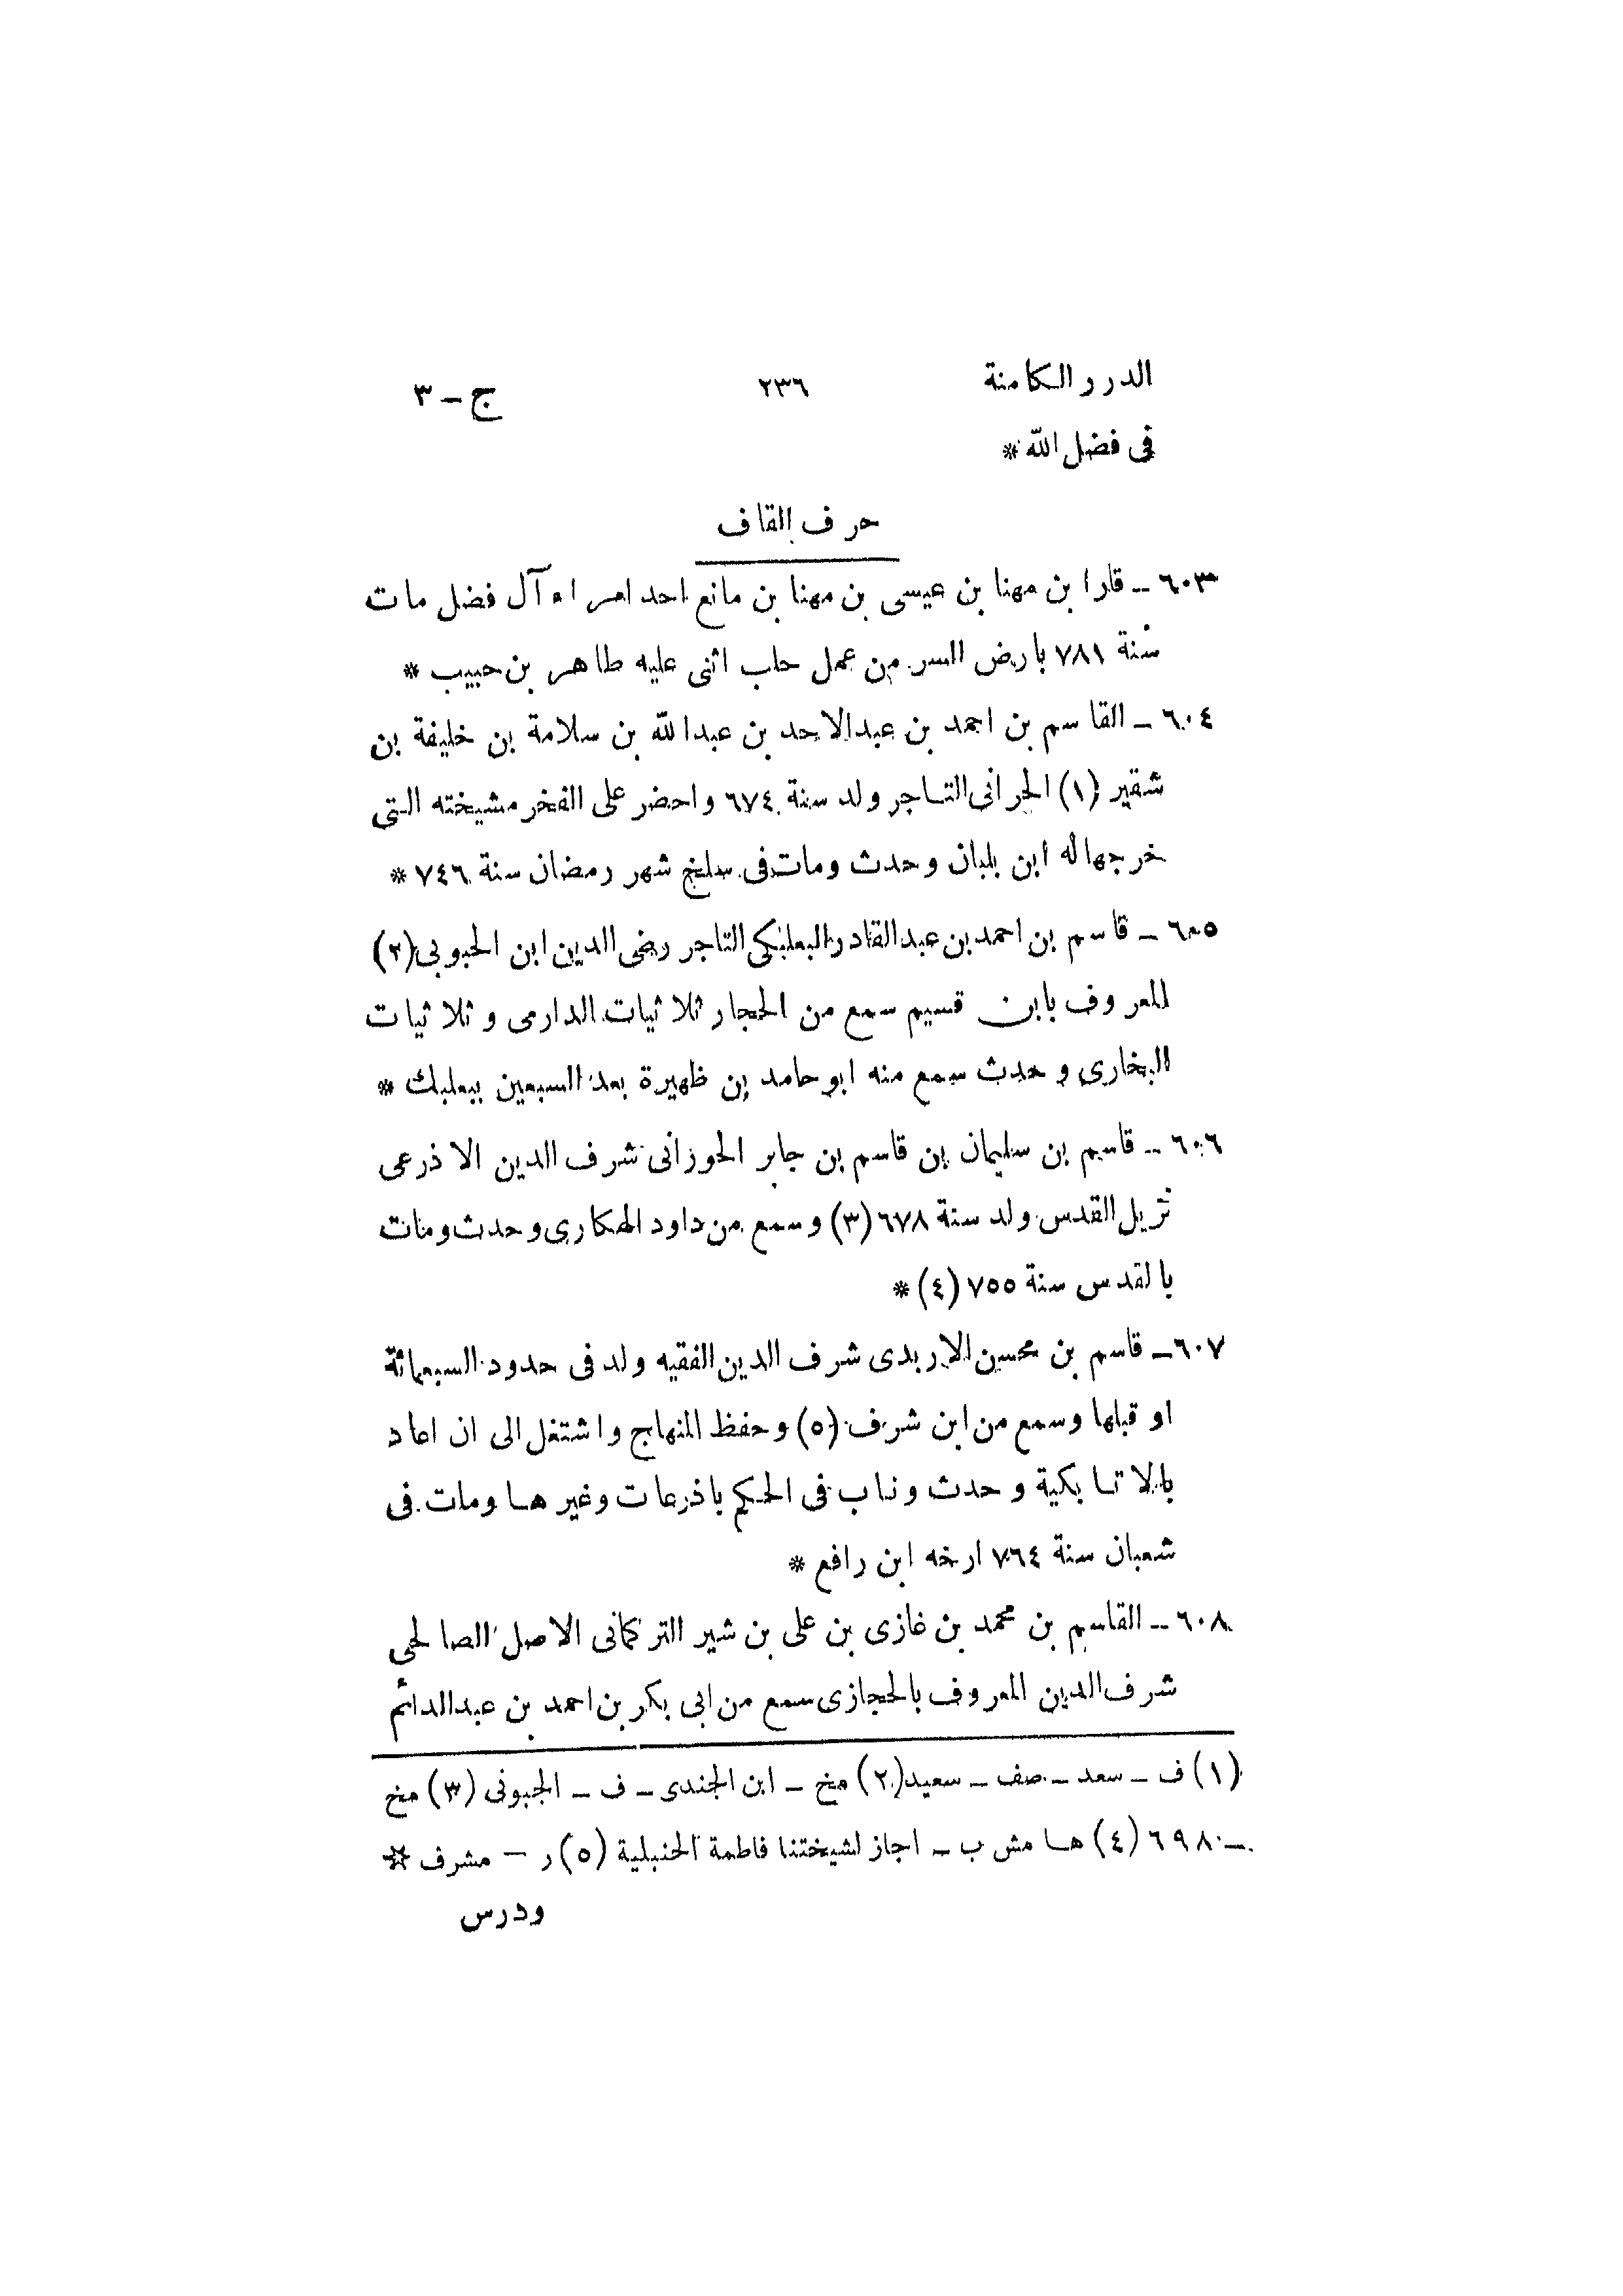 الدرر الكامنة ٢٣٦ ج - ٣
فى فضل الله *
حرف القاف
٦٠٣ - قارا بن مهنا بن عيسى بن مهنا بن مانع احد امراء آل فضل مات
سنة ٧٨١ بارض السر من عمل حلب اثنى عليه طاهر بن حبيب *
٦٠٤ - القاسم بن احمد بن عبدالاحد بن عبدالله بن سلامة بن خليفة بن
شقير (١) الحرانى التاجر ولد سنة ٦٧٤ واحضر على الفخر مشيخته التى
خرجها له ابن بلبان وحدث ومات فى سلخ شهر رمضان سنة ٧٤٦ *
٦٠٥ - قاسم بن احمد بن عبدالقادر البعلبكى التاجر رضى الدين ابن الحبوبى (٢)
المعروف بابن قسيم سمع من الحجار ثلاثيات الدارمى وثلاثيات
البخارى وحدث سمع منه ابو حامد بن ظهيرة بعد السبعين ببعلبك *
٦٠٦ - قاسم بن سليمان بن قاسم بن جابر الحوزانى شرف الدين الاذرعى
نزيل القدس ولد سنة ٦٧٨ (٣) وسمع من داود الهكارى وحدث ومات
بالقدس سنة ٧٥٥ (٤) *
٦٠٧ - قاسم بن محسن الاربدى شرف الدين الفقيه ولد فى حدود السبعمائة
او قبلها وسمع من ابن شرف (٥) وحفظ المنهاج واشتغل الى ان اعاد
بالاتابكية وحدث وناب فى الحكم باذرعات وغيرها ومات فى
شعبان سنة ٧٦٤ ارخه ابن رافع *
٦٠٨ - القاسم بن محمد بن غازى بن على بن شير التركمانى الاصل الصالحى
شرف الدين المعروف بالحجازى سمع من ابى بكر بن احمد بن عبدالدائم
(١) ف - سعد - صف - سعيد (٢) مخ - ابن الجندى - ف - الجبونى (٣) مخ
- ٦٩٨ (٤) هامش ب - اجاز لشيختنا فاطمة الحنبلية (٥) ر - مشرف *
ودرس